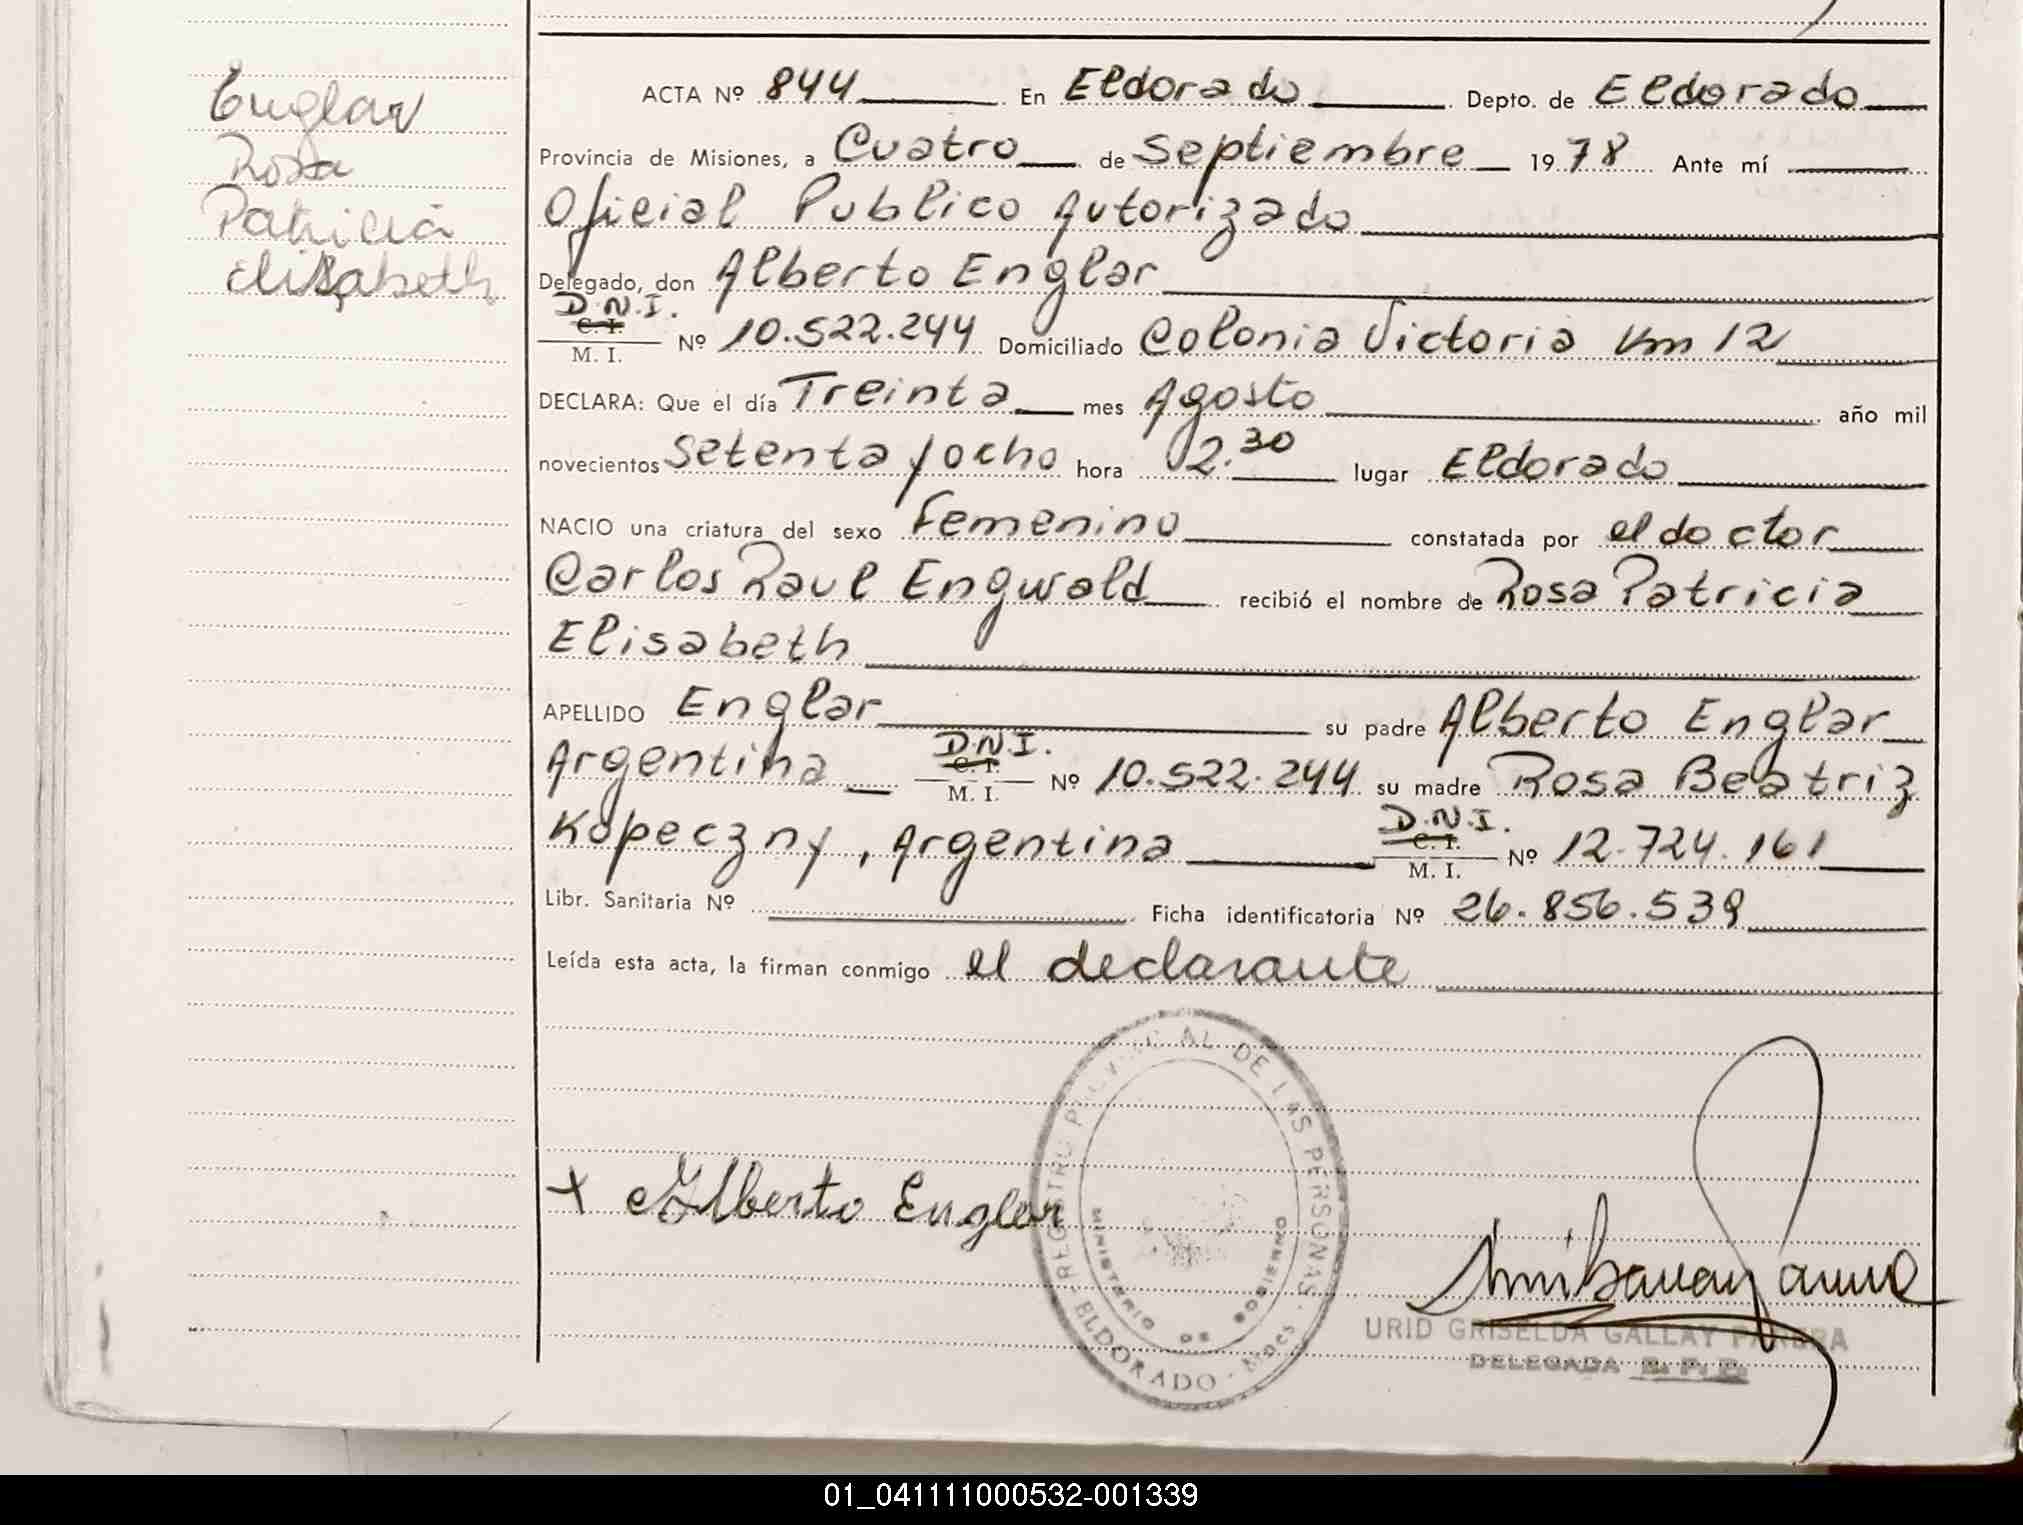 Englar
Rosa
Patricia
Elisabeth
ACTA Nº 844 En Eldorado Depto. de Eldorado
Provincia de Misiones, a Cuatro de Septiembre 1978 Ante mí
Oficial Publico Autorizado
Delegado, don Alberto Englar
D.N.I.
C. I.
M. I. Nº 10.522.244 Domiciliado Colonia Victoria Km 12
DECLARA: Que el día Treinta mes Agosto año mil
novecientos Setenta y ocho hora 2.30 lugar Eldorado
NACIO una criatura del sexo Femenino constatada por el doctor
Carlos Raul Engwald recibió el nombre de Rosa Patricia
Elisabeth
APELLIDO Englar su padre Alberto Englar
Argentina D.N.I. C. I. M. I. Nº 10.522.244 su madre Rosa Beatriz
Kopeczny, Argentina D.N.I. C. I. M. I. Nº 12.724.161
Libr. Sanitaria Nº Ficha identificatoria Nº 26.856.539
Leída esta acta, la firman conmigo el declarante
REGISTRO PROVINCIAL DE LAS PERSONAS
MINISTERIO DE GOBIERNO
ELDORADO - Mnes
+ Alberto Englar
URID GRISELDA GALLAY
DELEGADA R. P. P.
01_041111000532-001339